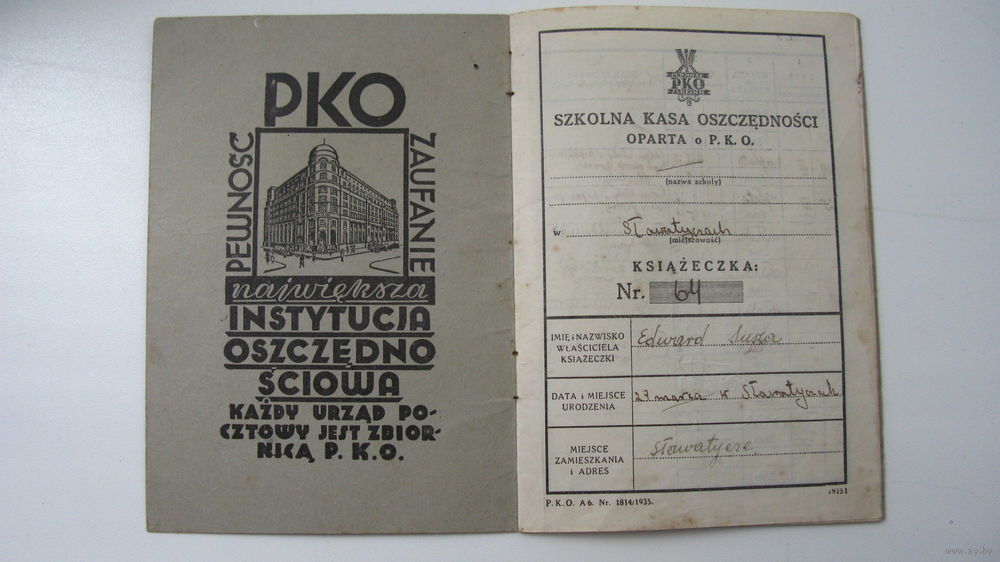 PKO
PEWNOŚĆ
ZAUFANIE
największa
INSTYTUCJA
OSZCZĘDNO
ŚCIOWA
KAŻDY URZĄD PO-
CZTOWY JEST ZBIOR-
NICĄ P. K. O.
PEWNOŚĆ
PKO
ZAUFANIE
SZKOLNA KASA OSZCZĘDNOŚCI
OPARTA o P. K. O.
(nazwa szkoły)
w Sławatyczach
(miejscowość)
KSIĄŻECZKA:
Nr. 64
IMIĘ i NAZWISKO
WŁAŚCICIELA
KSIĄŻECZKI
Edward Suza
DATA i MIEJSCE
URODZENIA
23 marca w Sławatyczach
MIEJSCE
ZAMIESZKANIA
i ADRES
Sławatycze
P. K. O. A6. Nr. 1814/1935.
www.ay.by